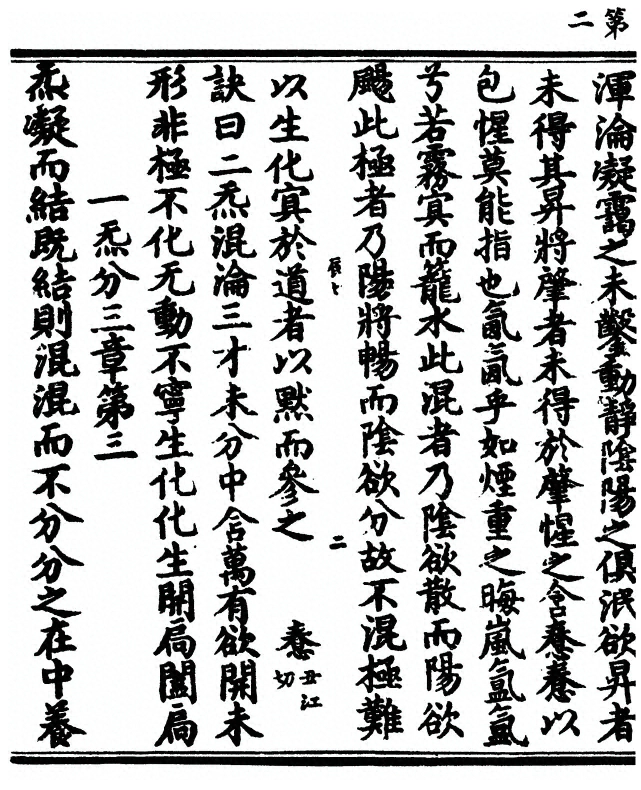 第二
渾淪凝靄之未鑿動靜陰陽之俱泯欲昇者
未得其昇將肈者未得於肈惺之含惷惷以
包惺莫能指也氤氳乎如煙重之晦嵐氳氳
兮若霧寘而籠水此混者乃陰欲散而陽欲
颺此極者乃陽將暢而陰欲分故不混極難
辰七
二
以生化寘於道者以默而參之 惷丑江切
訣曰二炁混淪三才未分中含萬有欲開未
形非極不化无動不寧生化化生開扃闔扃
一炁分三章第三
炁凝而結旣結則混混而不分分之在中養